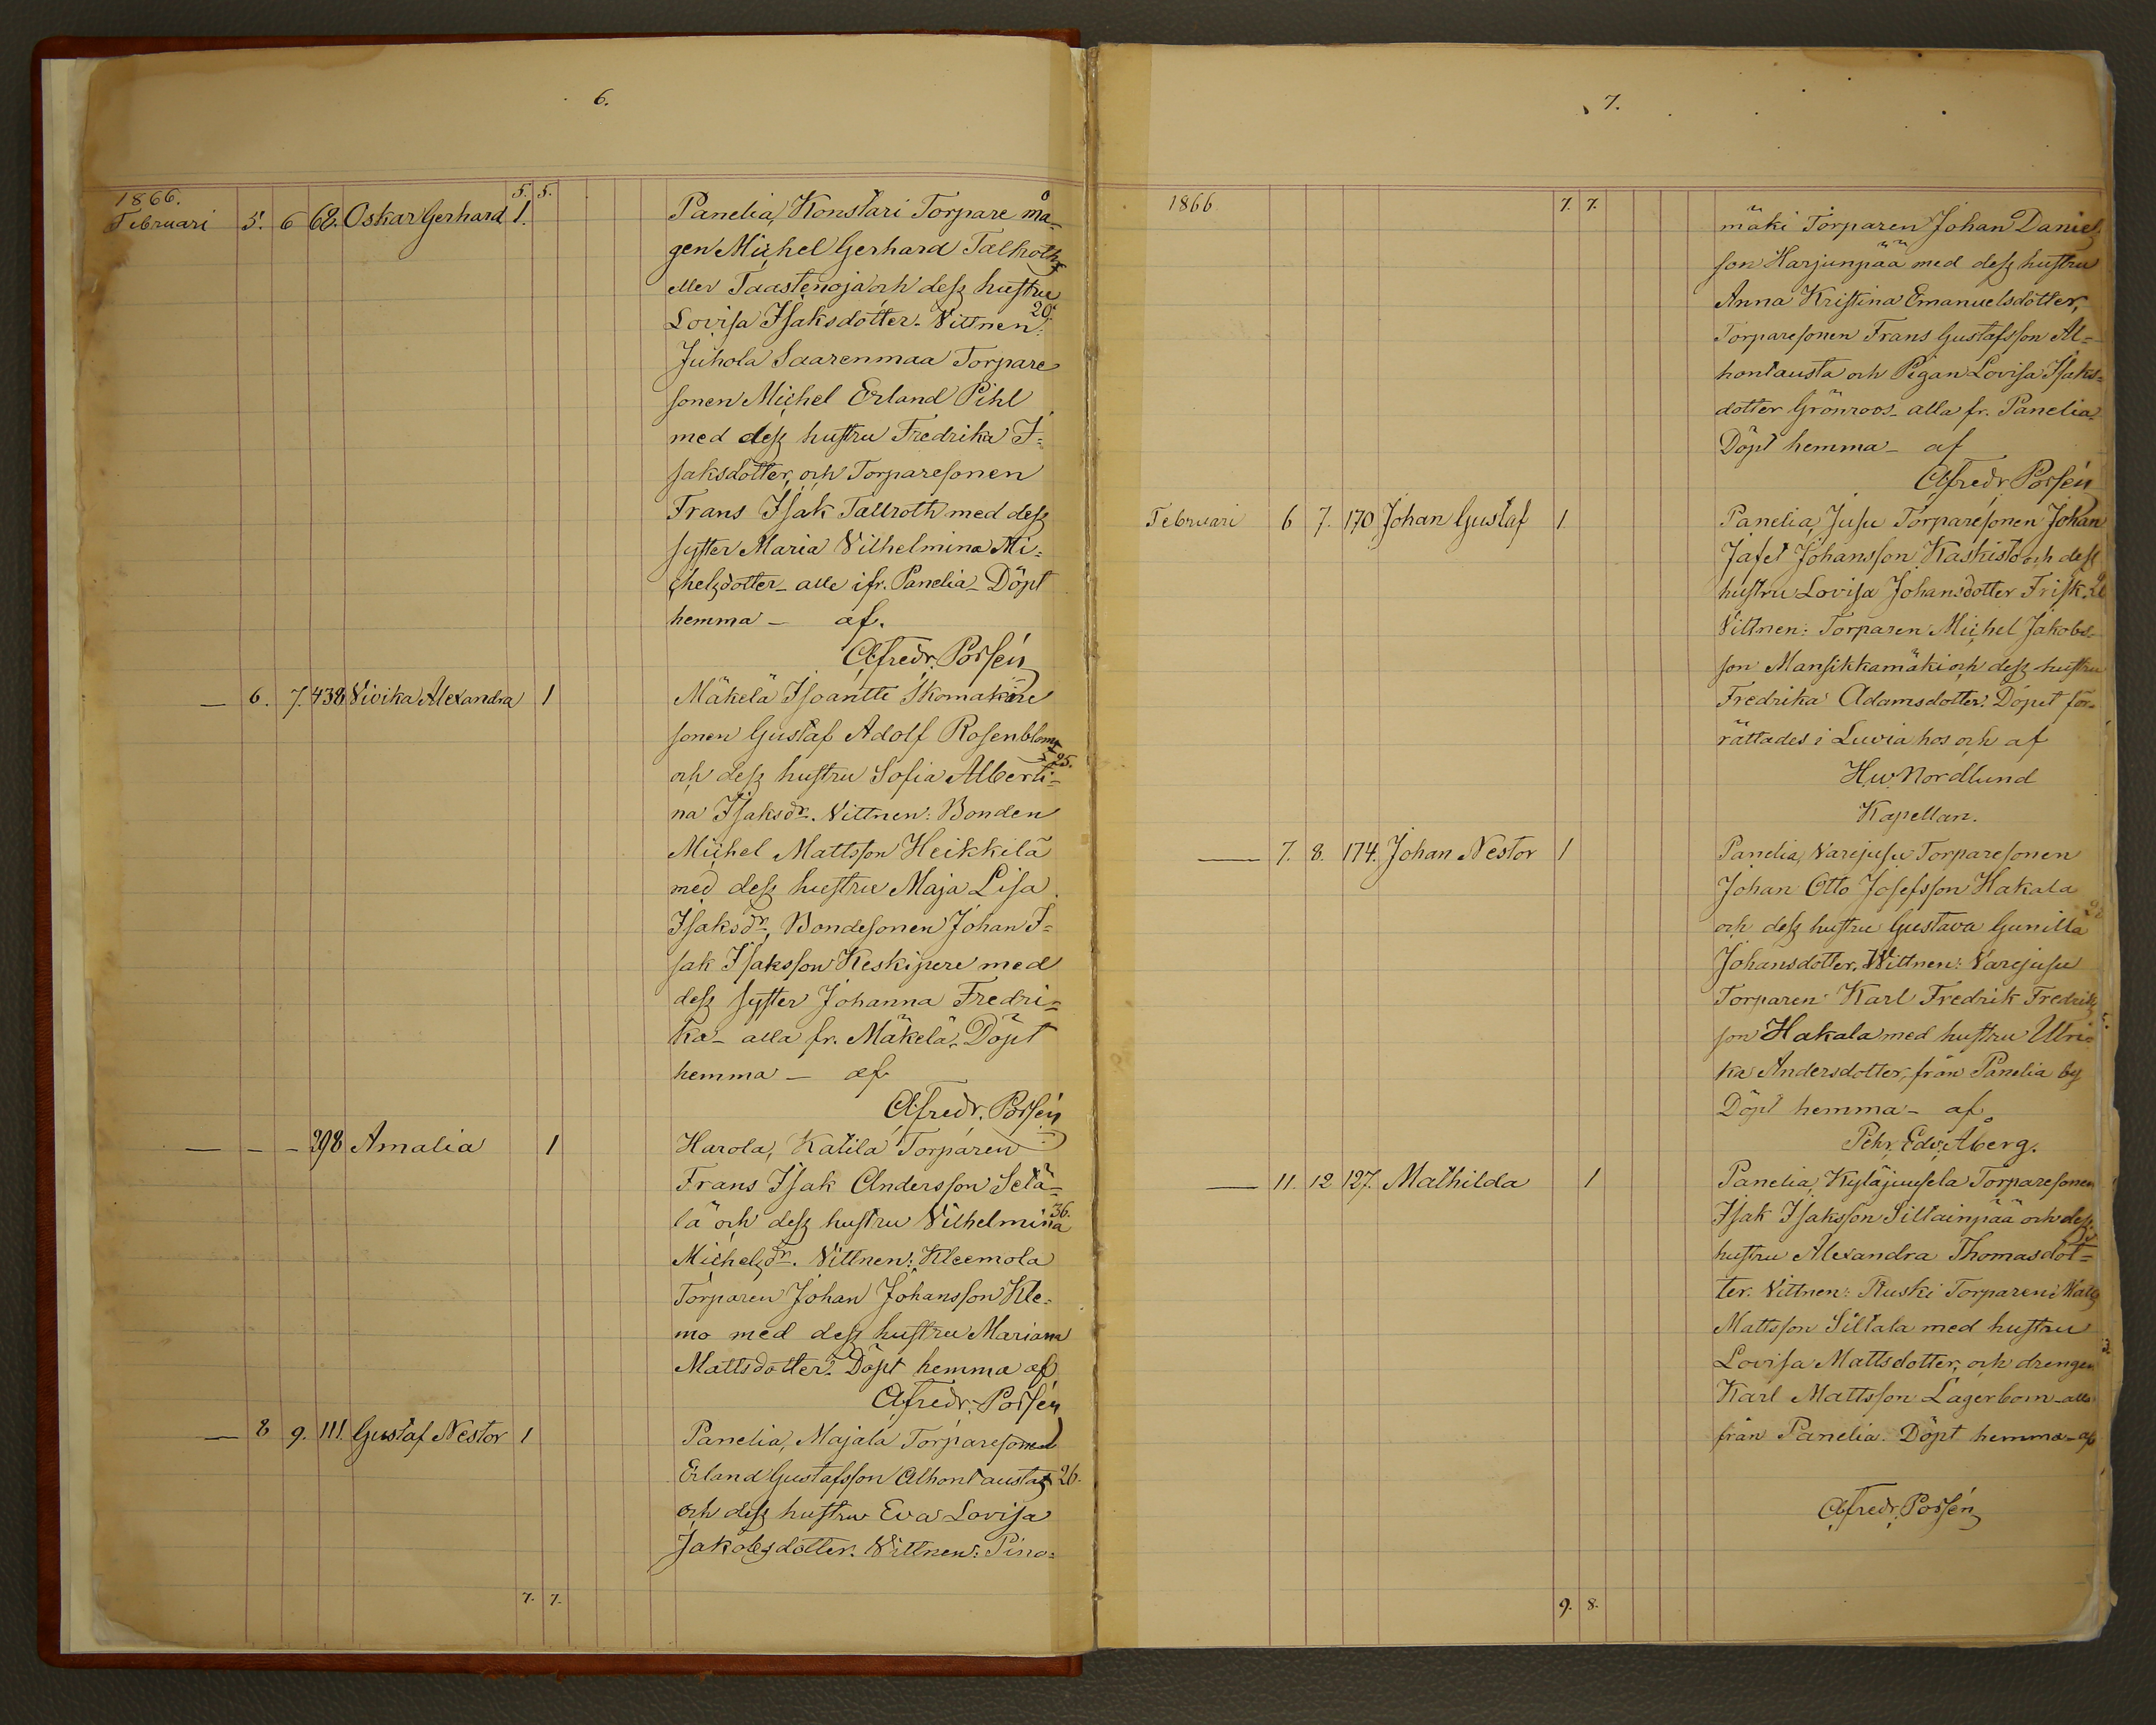 6.
1866. 5. 5.
Februari 5. 6 68. Oskar Gerhard 1. Panelia, Konstari Torpare må-
gen Michel Gerhard Tallroth
eller Taastenoja och dess hustru
Lovisa Isaksdotter. Vittnen: 20.
Juhola Saarenmaa Torpare
sonen Michel Erland Pihl
med dess hustru Fredrika I=
saksdotter, och Torparesonen
Frans Isak Tallroth med dess
syster Maria Vilhelmina Mi=
chelsdotter – alle ifr. Panelia – Döpt
hemma – af.
Afredr. Porsén
— 6. 7. 438 Vivika Alexandra 1 Mäkelä Isoantti Skomakare
sonen Gustaf Adolf Rosenblom
och dess hustru Sofia Alberti= 25.
na Isaksdr. Vittnen: Bonden
Michel Mattsson Heikkilä
med dess hustru Maja Lisa
Isaksdr, Bondesonen Johan I=
sak Isaksson Keskipere med
dess syster Johanna Fredri=
ka – alla fr. Mäkelä. Döpt
hemma – af
Afredr. Porsén
— – – 298 Amalia 1 Harola, Katila Torparen
Frans Isak Andersson Setä=
lä och dess hustru Vilhelmina 36.
Michelsdr. Vittnen: Kleemola
Torparen Johan Johansson Kle=
mo med dess hustru Mariana
Mattsdotter. Döpt hemma af
Afredr. Porsén
— 8 9. 111. Gustaf Nestor 1 Panelia, Majala Torparesonen
Erland Gustafsson Alhontausta 26.
och dess hustru Eva Lovisa
Jakobsdotter. Vittnen: Pino=
7. 7.
7.
1866 7. 7.
mäki Torparen Johan Daniels
son Harjunpää med dess hustru
Anna Kristina Emanuelsdotter,
Torparesonen Frans Gustafsson Al=
hontausta och Pigan Lovisa Isaks=
dotter Grönroos – alla fr. Panelia.
Döpt hemma – af
Afredr Porsén
Februari 6 7. 170 Johan Gustaf 1 Panelia, Jusu Torparesonen Johan
Jafet Johansson Kaskisto och dess
hustru Lovisa Johansdotter Frisk.
Vittnen: Torparen Michel Jakobs-
son Mansikkamäki och dess hustru
Fredrika Adamsdotter. Döpet för=
rättades i Luvia hos och af
H.w. Nordlund
Kapellan.
— 7. 8. 174. Johan Nestor 1 Panelia, Varejusu Torparesonen
Johan Otto Josefsson Hakala
och dess hustru Gustava Gunilla
Johansdotter. Wittnen: Varejusu
Torparen Karl Fredrik Fredriks
son Hakala med hustru Ulri=
ka Andersdotter, från Panelia by
Döpt hemma – af
Pehr. Edv. Åberg.
— 11. 12 127. Mathilda 1 Panelia, Kyläjuusela Torparesonen
Isak Isaksson Siltainpää och dess
hustru Alexandra Thomasdot=
ter. Vittnen: Ruski Torparen
Mattsson Siltala med hustru
Lovisa Mattsdotter, och drengen
Karl Mattsson Lagerbom – alla
från Panelia. Döpt hemma – af
Afredr. Porsén
9. 8.